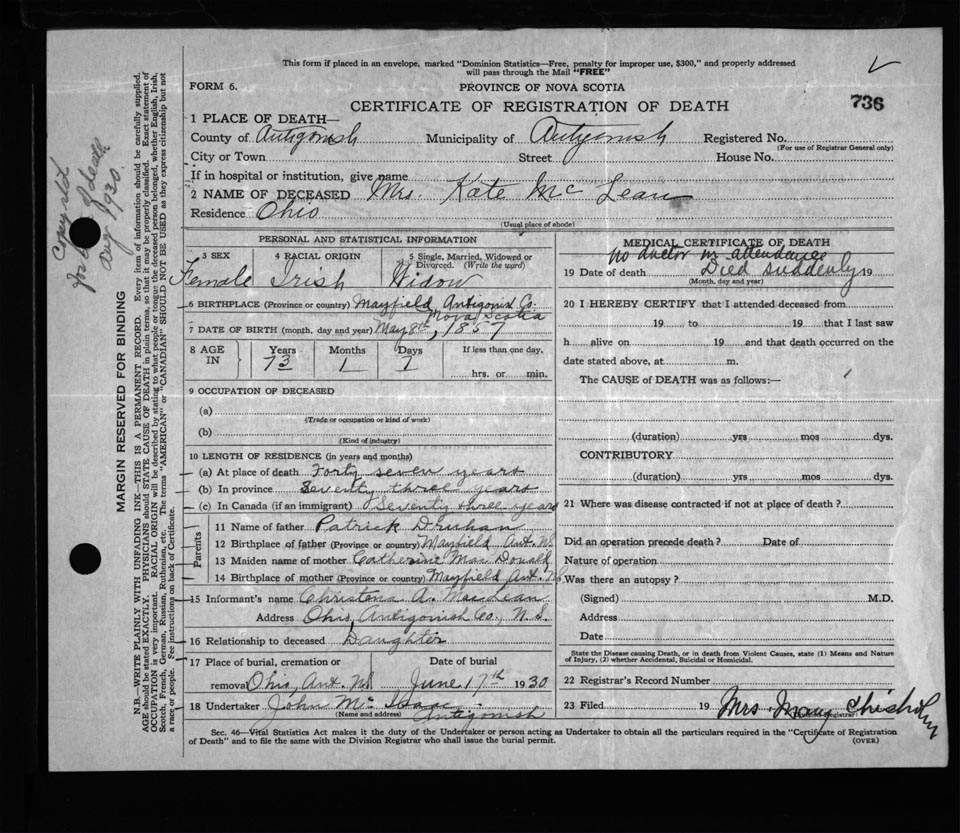 This form if placed in an envelope, marked "Dominion Statistics—Free, penalty for improper use, $300," and properly addressed
will pass through the Mail "FREE"
FORM 6.
PROVINCE OF NOVA SCOTIA
CERTIFICATE OF REGISTRATION OF DEATH
736
1 PLACE OF DEATH—
County of Antigonish Municipality of Antigonish Registered No.
(For use of Registrar General only)
City or Town Street House No.
If in hospital or institution, give name
2 NAME OF DECEASED Mrs. Kate Mc Lean
Residence Ohio
(Usual place of abode)
PERSONAL AND STATISTICAL INFORMATION
3 SEX 4 RACIAL ORIGIN 5 Single, Married, Widowed or
Divorced. (Write the word)
Female Irish Widow
6 BIRTHPLACE (Province or country) Mayfield Antigonish Co.
Nova Scotia
7 DATE OF BIRTH (month, day and year) May 8th, 1857
8 AGE IN Years Months Days If less than one day.
73 1 7 hrs. or min.
9 OCCUPATION OF DECEASED
(a)
(Trade or occupation or kind of work)
(b)
(Kind of industry)
10 LENGTH OF RESIDENCE (in years and months)
(a) At place of death Forty seven years
(b) In province Seventy three years
(c) In Canada (if an immigrant) Seventy three years
Parents
11 Name of father Patrick Druhan
12 Birthplace of father (Province or country) Mayfield Ant. N.S.
13 Maiden name of mother Catherine Mac Donald
14 Birthplace of mother (Province or country) Mayfield Ant. N.S.
15 Informant's name Christena A. MacLean
Address Ohio, Antigonish Co., N.S.
16 Relationship to deceased Daughter
17 Place of burial, cremation or Date of burial
removal Ohio, Ant. N.S. June 17th 1930
18 Undertaker John Mc Isaac
(Name and address) Antigonish
MEDICAL CERTIFICATE OF DEATH
no doctor in attendance
19 Date of death Died suddenly 19
(Month, day and year)
20 I HEREBY CERTIFY that I attended deceased from
19 to 19 that I last saw
h alive on 19 and that death occurred on the
date stated above, at m.
The CAUSE of DEATH was as follows:—
(duration) yrs mos dys.
CONTRIBUTORY
(duration) yrs mos dys.
21 Where was disease contracted if not at place of death?
Did an operation precede death? Date of
Nature of operation
Was there an autopsy?
(Signed) M.D.
Address
Date
State the Disease causing Death, or in death from Violent Causes, state (1) Means and Nature
of Injury, (2) whether Accidental, Suicidal or Homicidal.
22 Registrar's Record Number
23 Filed 19 Mrs Mary Chisholm
Sec. 46—Vital Statistics Act makes it the duty of the Undertaker or person acting as Undertaker to obtain all the particulars required in the "Certificate of Registration
of Death" and to file the same with the Division Registrar who shall issue the burial permit.
(OVER)
MARGIN RESERVED FOR BINDING
N.B.—WRITE PLAINLY WITH UNFADING INK—THIS IS A PERMANENT RECORD. Every item of information should be carefully supplied.
AGE should be stated EXACTLY. PHYSICIANS should STATE CAUSE OF DEATH in plain terms, so that it may be properly classified. Exact statement of
OCCUPATION is very important. RACIAL ORIGIN will be described by stating to what people or tongue the deceased person belonged, whether English, Irish,
Scotch, French, German, Russian, Ruthenian, etc. The terms "AMERICAN" or "CANADIAN" SHOULD NOT BE USED as they express citizenship but not
a race or people. See instructions on back of Certificate.
of death
Aug 1930